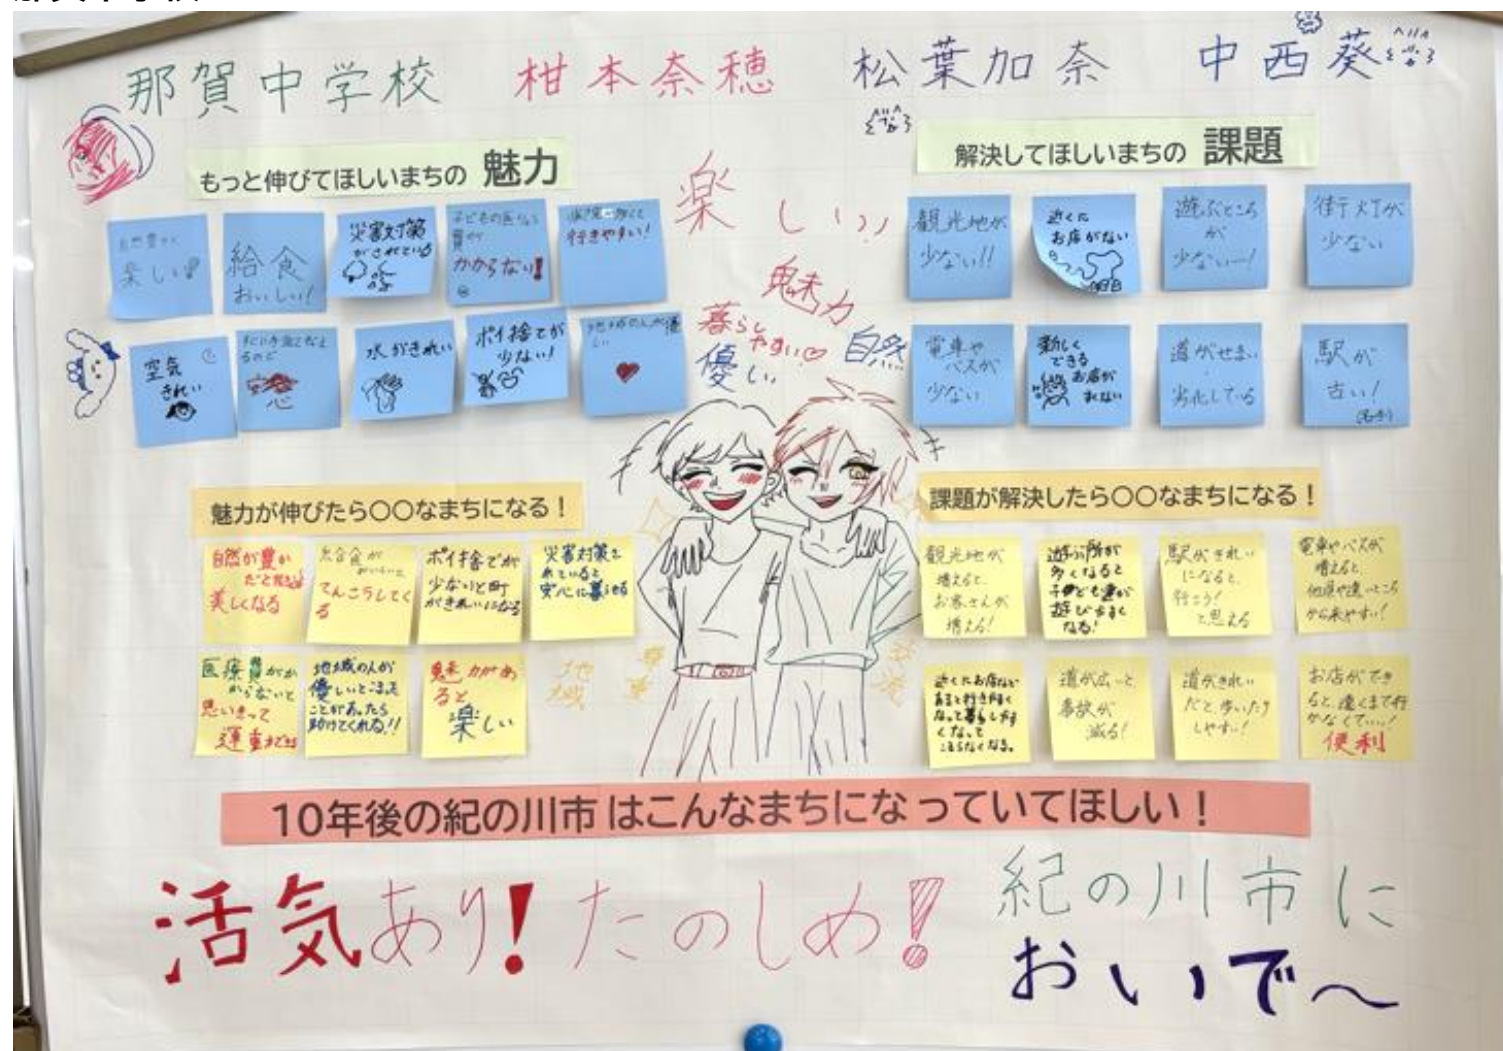 那賀中学校 柑本奈穂 松葉加奈 中西葵
もっと伸びてほしいまちの 魅力
自然豊かで
楽しい
給食
おいしい!
災害対策
がされている
子どもの医りょう
費が
かからない!
行きやすい!
空気
きれい
水がきれい
ポイ捨てが
少ない!
地域の人が優
しい
楽しい
魅力
暮らし
やすい
優しい
自然
解決してほしいまちの 課題
観光地が
少ない!!
近くに
お店がない
遊ぶところ
が
少ないー!
街灯が
少ない
電車や
バスが
少ない
新しく
できる
お店が
すくない
道がせまい
劣化している
駅が
古い!
魅力が伸びたら○○なまちになる!
自然が豊か
だと
美しくなる
給食が
おいしいと
てんこうしてく
る
ポイ捨てが
少ないと町
がきれいになる
災害対策さ
れていると
安心に暮らせる
医療費がか
からないと
思いきって
運動できる
地域の人が
優しいと
ことがあったら
助けてくれる!!
魅力があ
ると
楽しい
地域
課題が解決したら○○なまちになる!
観光地が
増えると、
お客さんが
増える!
遊ぶ所が
多くなると
子ども達が
遊びやすく
なる!
駅がきれい
になると、
行こう!
と思える
電車やバスが
増えると、
他県や遠いところ
から来やすい!
近くにお店など
あると行きやすく
なって暮らしやす
くなって
こまらなくなる。
道が広いと、
事故が
減る!
道がきれい
だと、歩いたり
しやすい!
お店ができ
ると、遠くまで行
かなくて…!
便利
10年後の紀の川市はこんなまちになっていてほしい!
活気あり!たのしめ!
紀の川市に
おいで〜